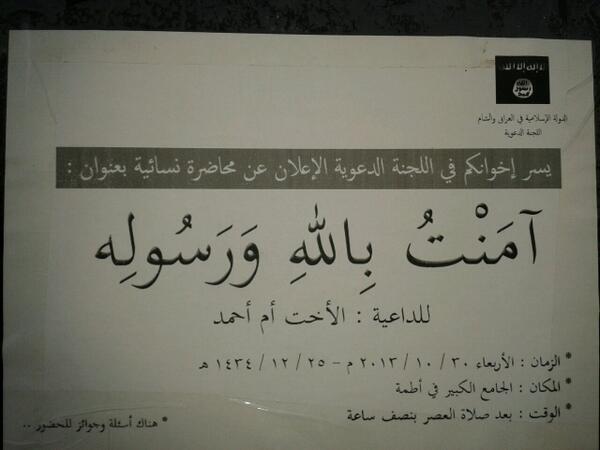 لا إله إلا الله
الله
رسول
محمد
الدولة الإسلامية في العراق والشام
اللجنة الدعوية
يسر إخوانكم في اللجنة الدعوية الإعلان عن محاضرة نسائية بعنوان :
آمَنْتُ بِاللهِ وَرَسُولِه
للداعية : الأخت أم أحمد
* الزمان : الأربعاء ٣٠ / ١٠ / ٢٠١٣ م - ٢٥ / ١٢ / ١٤٣٤ هـ
* المكان : الجامع الكبير في أطمة
* الوقت : بعد صلاة العصر بنصف ساعة
* هناك أسئلة وجوائز للحضور ..